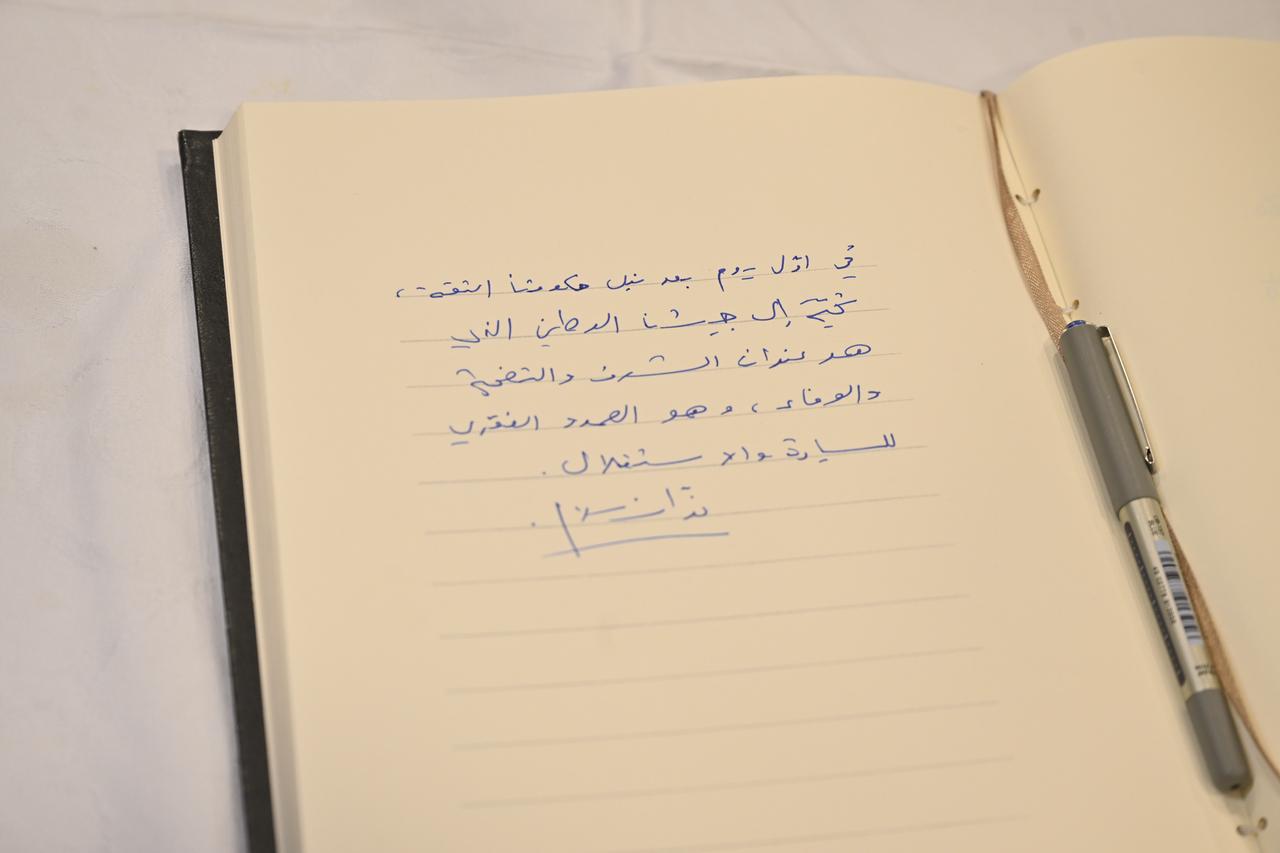 في اوّل يوم بعد نيل حكومتنا الثقة،
تحيّة إلى جيشنا الوطني الذي
هو عنوان الشرف والتضحية
والوفاء، وهو العمود الفقري
للسيادة والاستقلال.
نوّاف سلام